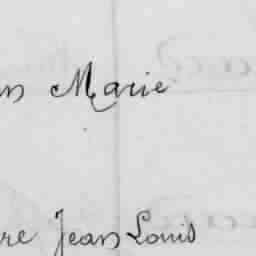 Marie
Jean Louis